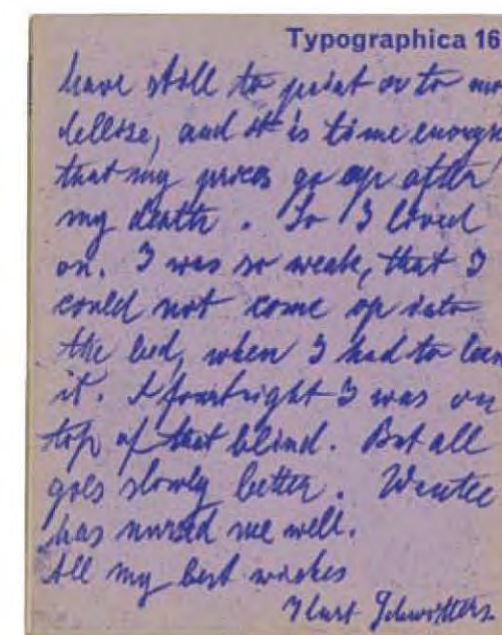 Typographica 16
have still to paint or to mo
dellise, and it is time enough
that my prices go up after
my death. So I lived
on. I was so weak, that I
could not come op into
the bed, when I had to leav
it. A fourtnight I was on
top of that blind. But all
goes slowly better. Wantee
has nursed me well.
All my best wishes
Kurt Schwitters.